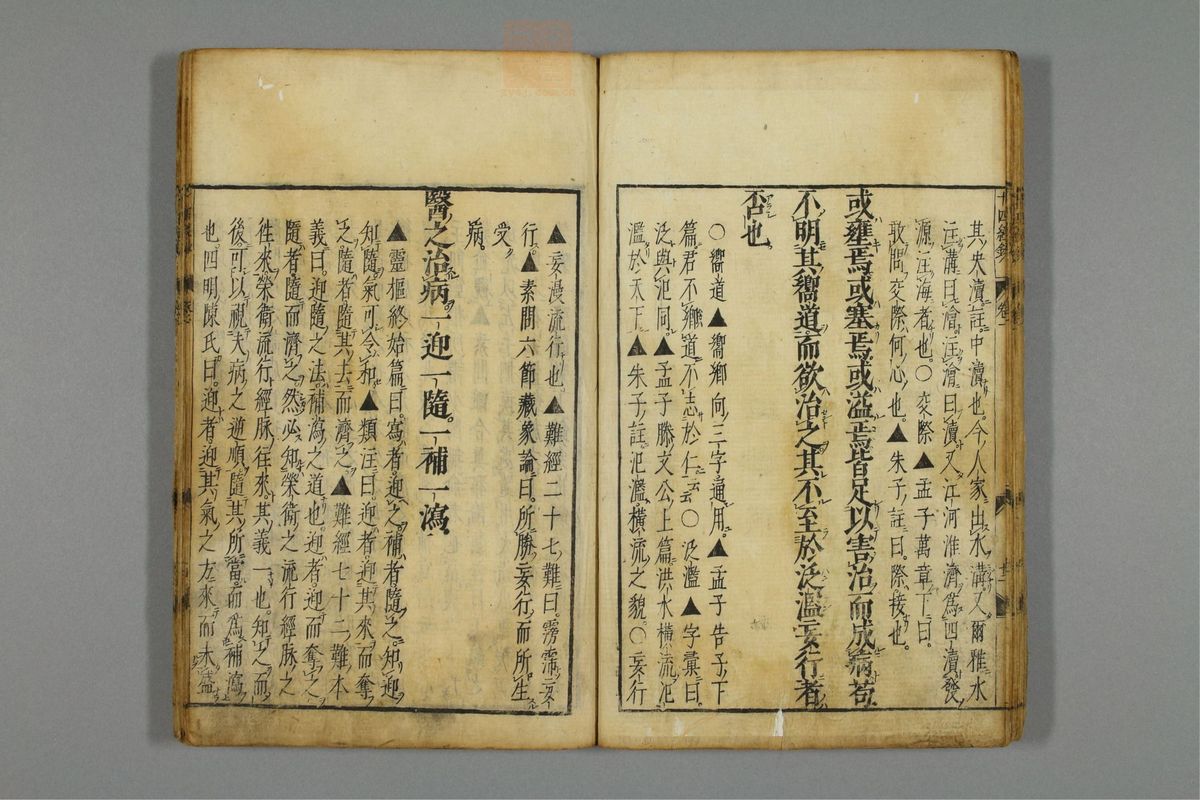 其央瀆註中瀆也今人家出水溝又爾雅水
注溝曰澮注澮曰瀆又江河淮濟爲四瀆發
源注海者也○交際▲孟子萬章下曰
敢問交際何心也▲朱子註曰際接也
或壅焉或塞焉或溢焉皆足以害治而成病苟
不明其嚮道而欲治之其不至於泛濫妄行者
否也
○嚮道▲嚮鄉向三字通用▲孟子告子下
篇君不鄉道不志於仁云云○泛濫▲字彙曰
泛與氾同▲孟子滕文公上篇洪水橫流氾
濫於天下▲朱子註氾濫橫流之貌○妄行
▲妄漫流行也▲難經二十七難曰霶霈妄
行▲素問六節藏象論曰所勝妄行而所生
受病
醫之治病一迎一隨一補一瀉
▲靈樞終始篇曰寫者迎之補者隨之知迎
知隨氣可令和▲類注曰迎者迎其來而奪
之隨者隨其去而濟之▲難經七十二難本
義曰迎隨之法補瀉之道也迎者迎而奪之
隨者隨而濟之然必知榮衛之流行經脉之
往來榮衛流行經脉往來其義一也知之而
後可以視夫病之逆順隨其所當而爲補瀉
也四明陳氏曰迎者迎其氣之方來而未盛